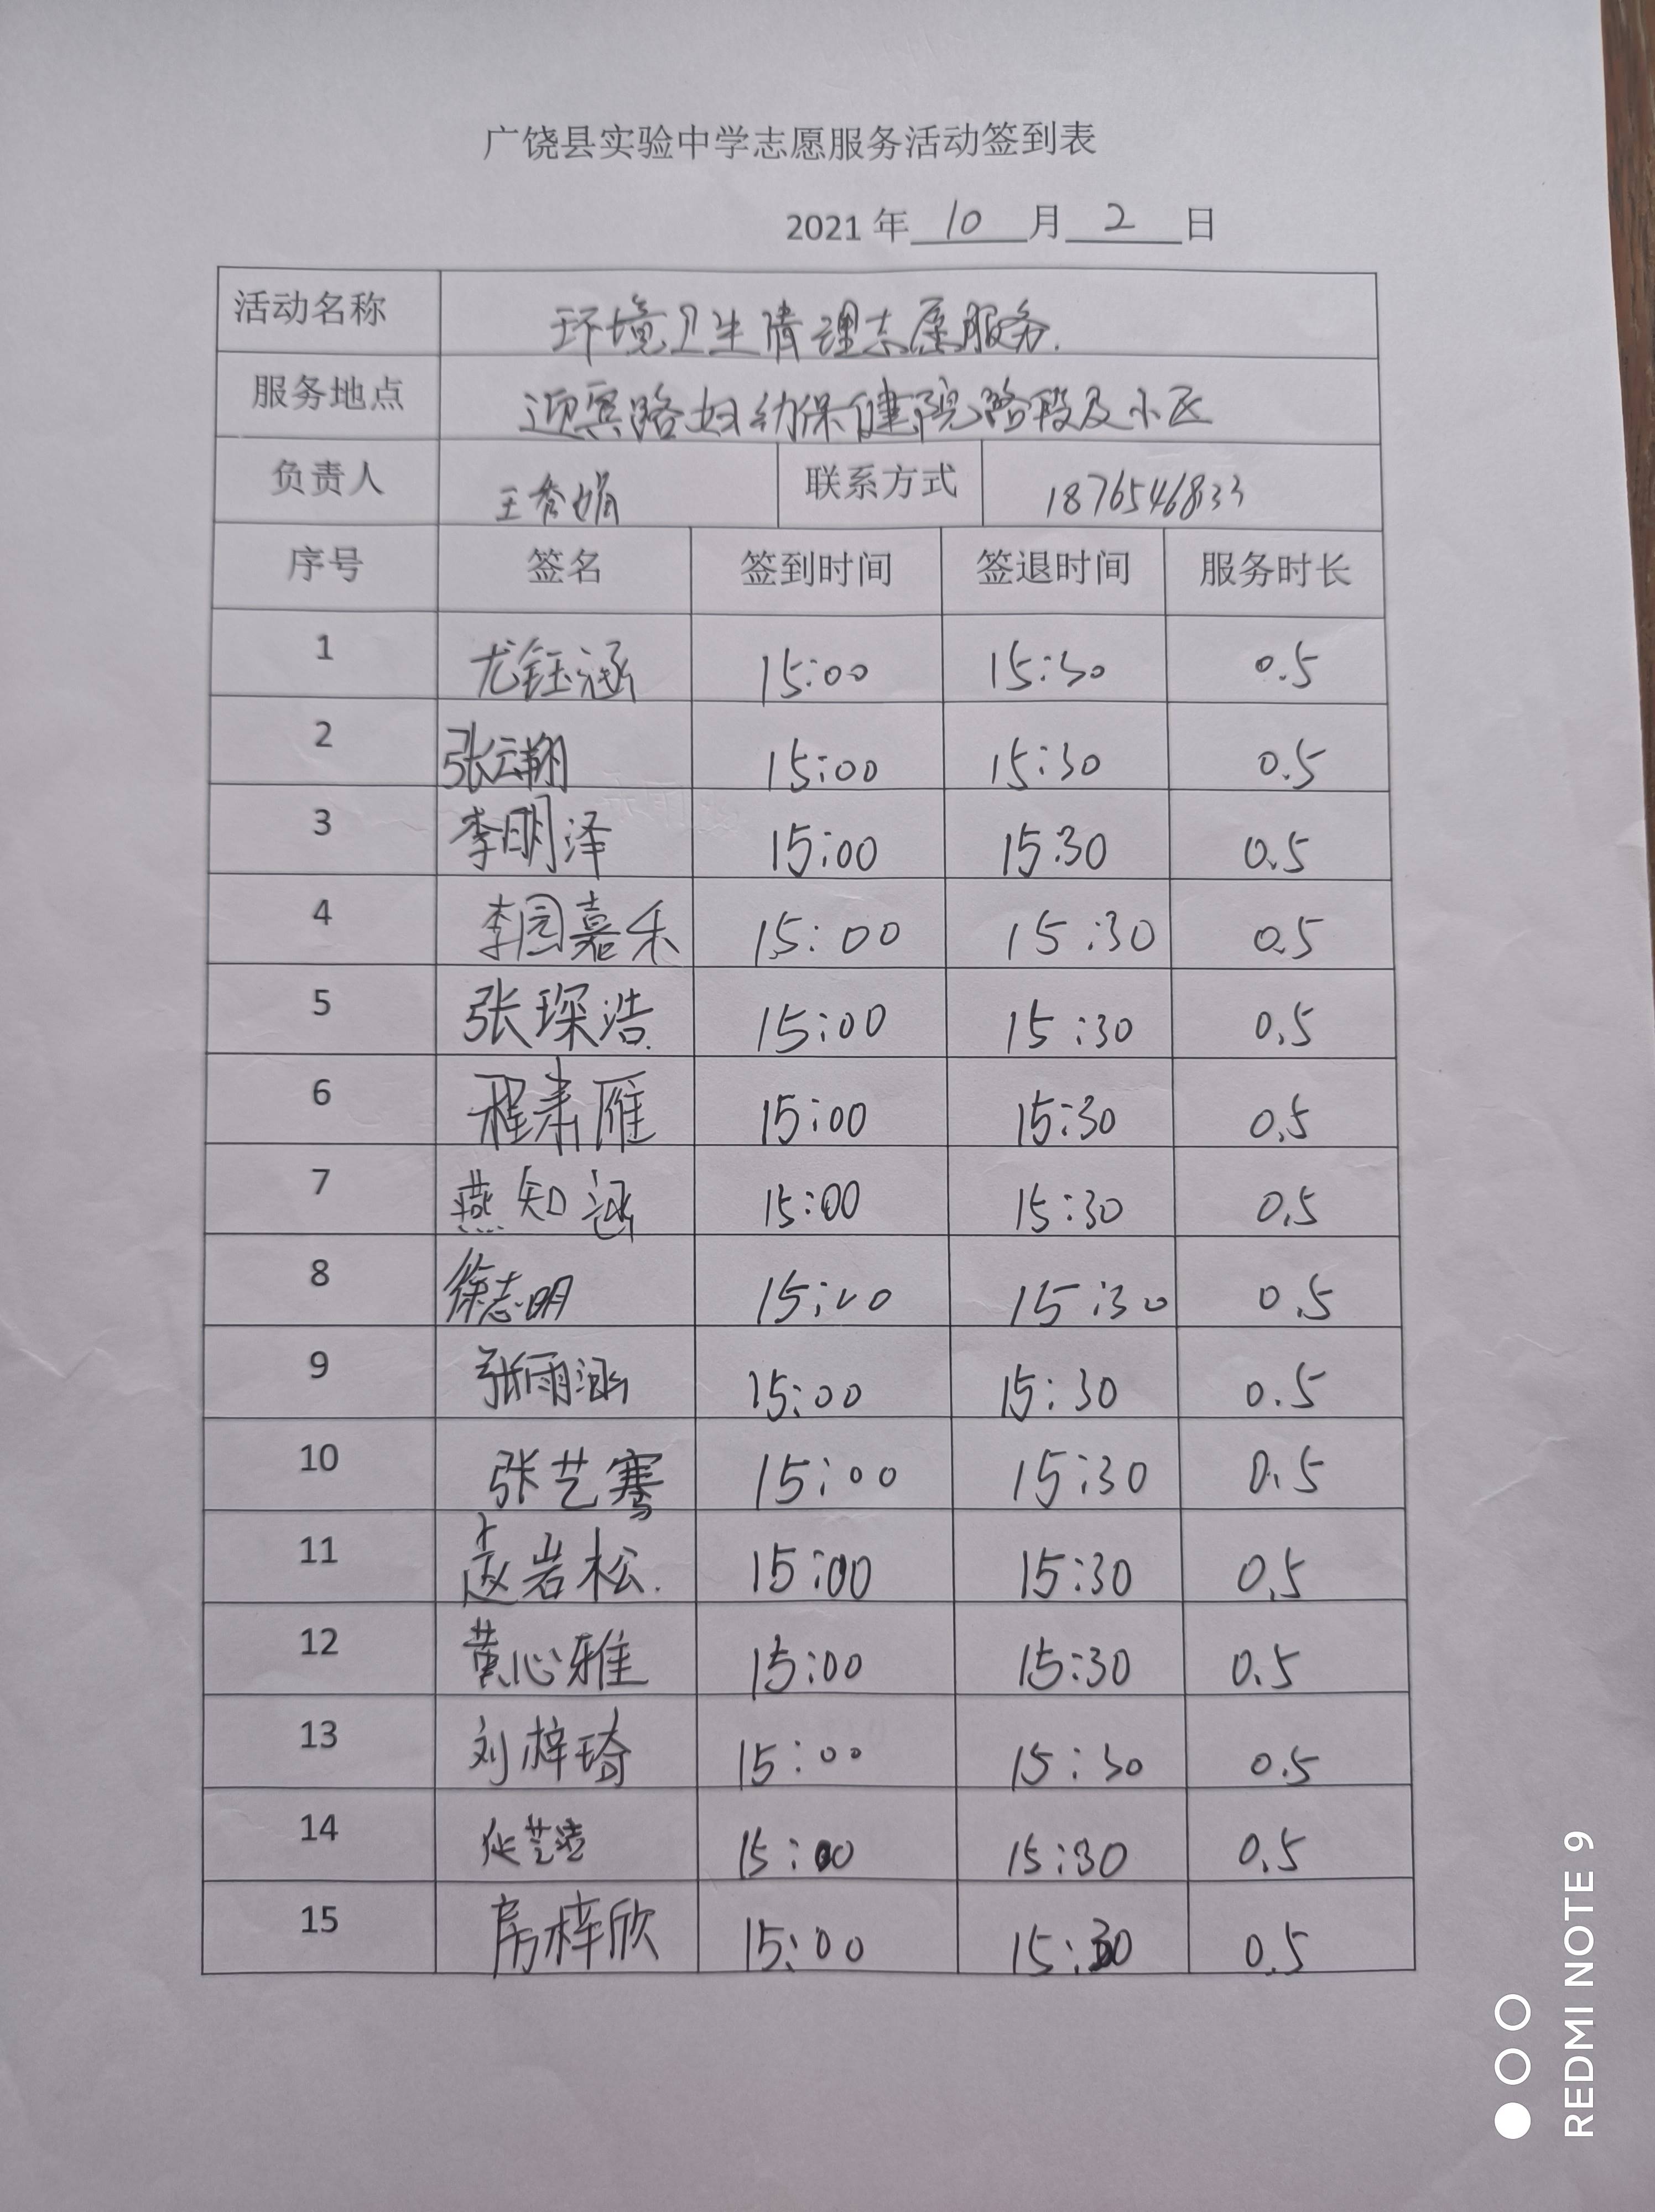 广饶县实验中学志愿服务活动签到表
2021 年 10 月 2 日
活动名称 环境卫生清理志愿服务.
服务地点 迎宾路妇幼保健院路段及小区
负责人 王秀娟 联系方式 1876546833
序号 签名 签到时间 签退时间 服务时长
1 尤钰涵 15:00 15:30 0.5
2 张云翔 15:00 15:30 0.5
3 李明泽 15:00 15:30 0.5
4 李园嘉禾 15:00 15:30 0.5
5 张琛浩 15:00 15:30 0.5
6 程肃雁 15:00 15:30 0.5
7 燕知涵 15:00 15:30 0.5
8 徐志明 15:00 15:30 0.5
9 张雨涵 15:00 15:30 0.5
10 张艺骞 15:00 15:30 0.5
11 赵岩松. 15:00 15:30 0.5
12 黄心雅 15:00 15:30 0.5
13 刘梓琦 15:00 15:30 0.5
14 15:00 15:30 0.5
15 房梓欣 15:00 15:30 0.5
REDMI NOTE 9